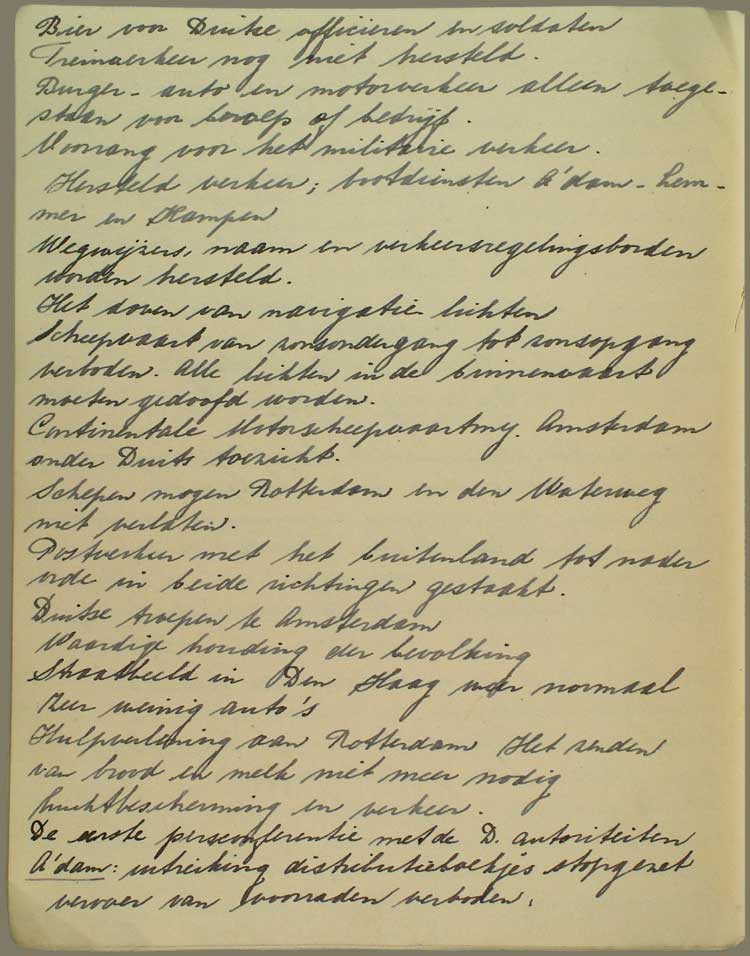 Bier voor Duitse officieren en soldaten
Treinverkeer nog niet hersteld.
Burger- auto en motorverkeer alleen toege-
staan voor beroep of bedrijf.
Voorrang voor het militaire verkeer.
Hersteld verkeer; bootdiensten A'dam - Lem-
mer en Kampen
Wegwijzers, naam en verkeersregelingsborden
worden hersteld.
Het doven van navigatie lichten
Scheepvaart van zonsondergang tot zonsopgang
verboden. Alle lichten in de binnenvaart
moeten gedoofd worden.
Continentale Motorscheepvaartmij. Amsterdam
onder Duits toezicht.
Schepen mogen Rotterdam en den Waterweg
niet verlaten.
Postverkeer met het buitenland tot nader
orde in beide richtingen gestaakt.
Duitse troepen te Amsterdam
Waardige houding der bevolking
Straatbeeld in Den Haag weer normaal
Zeer weinig auto's
Hulpverlening aan Rotterdam Het zenden
van brood en melk niet meer nodig
Luchtbescherming en verkeer.
De eerste persconferentie met de D. autoriteiten
A'dam: uitreiking distributieboekjes stopgezet
vervoer van voorraden verboden.